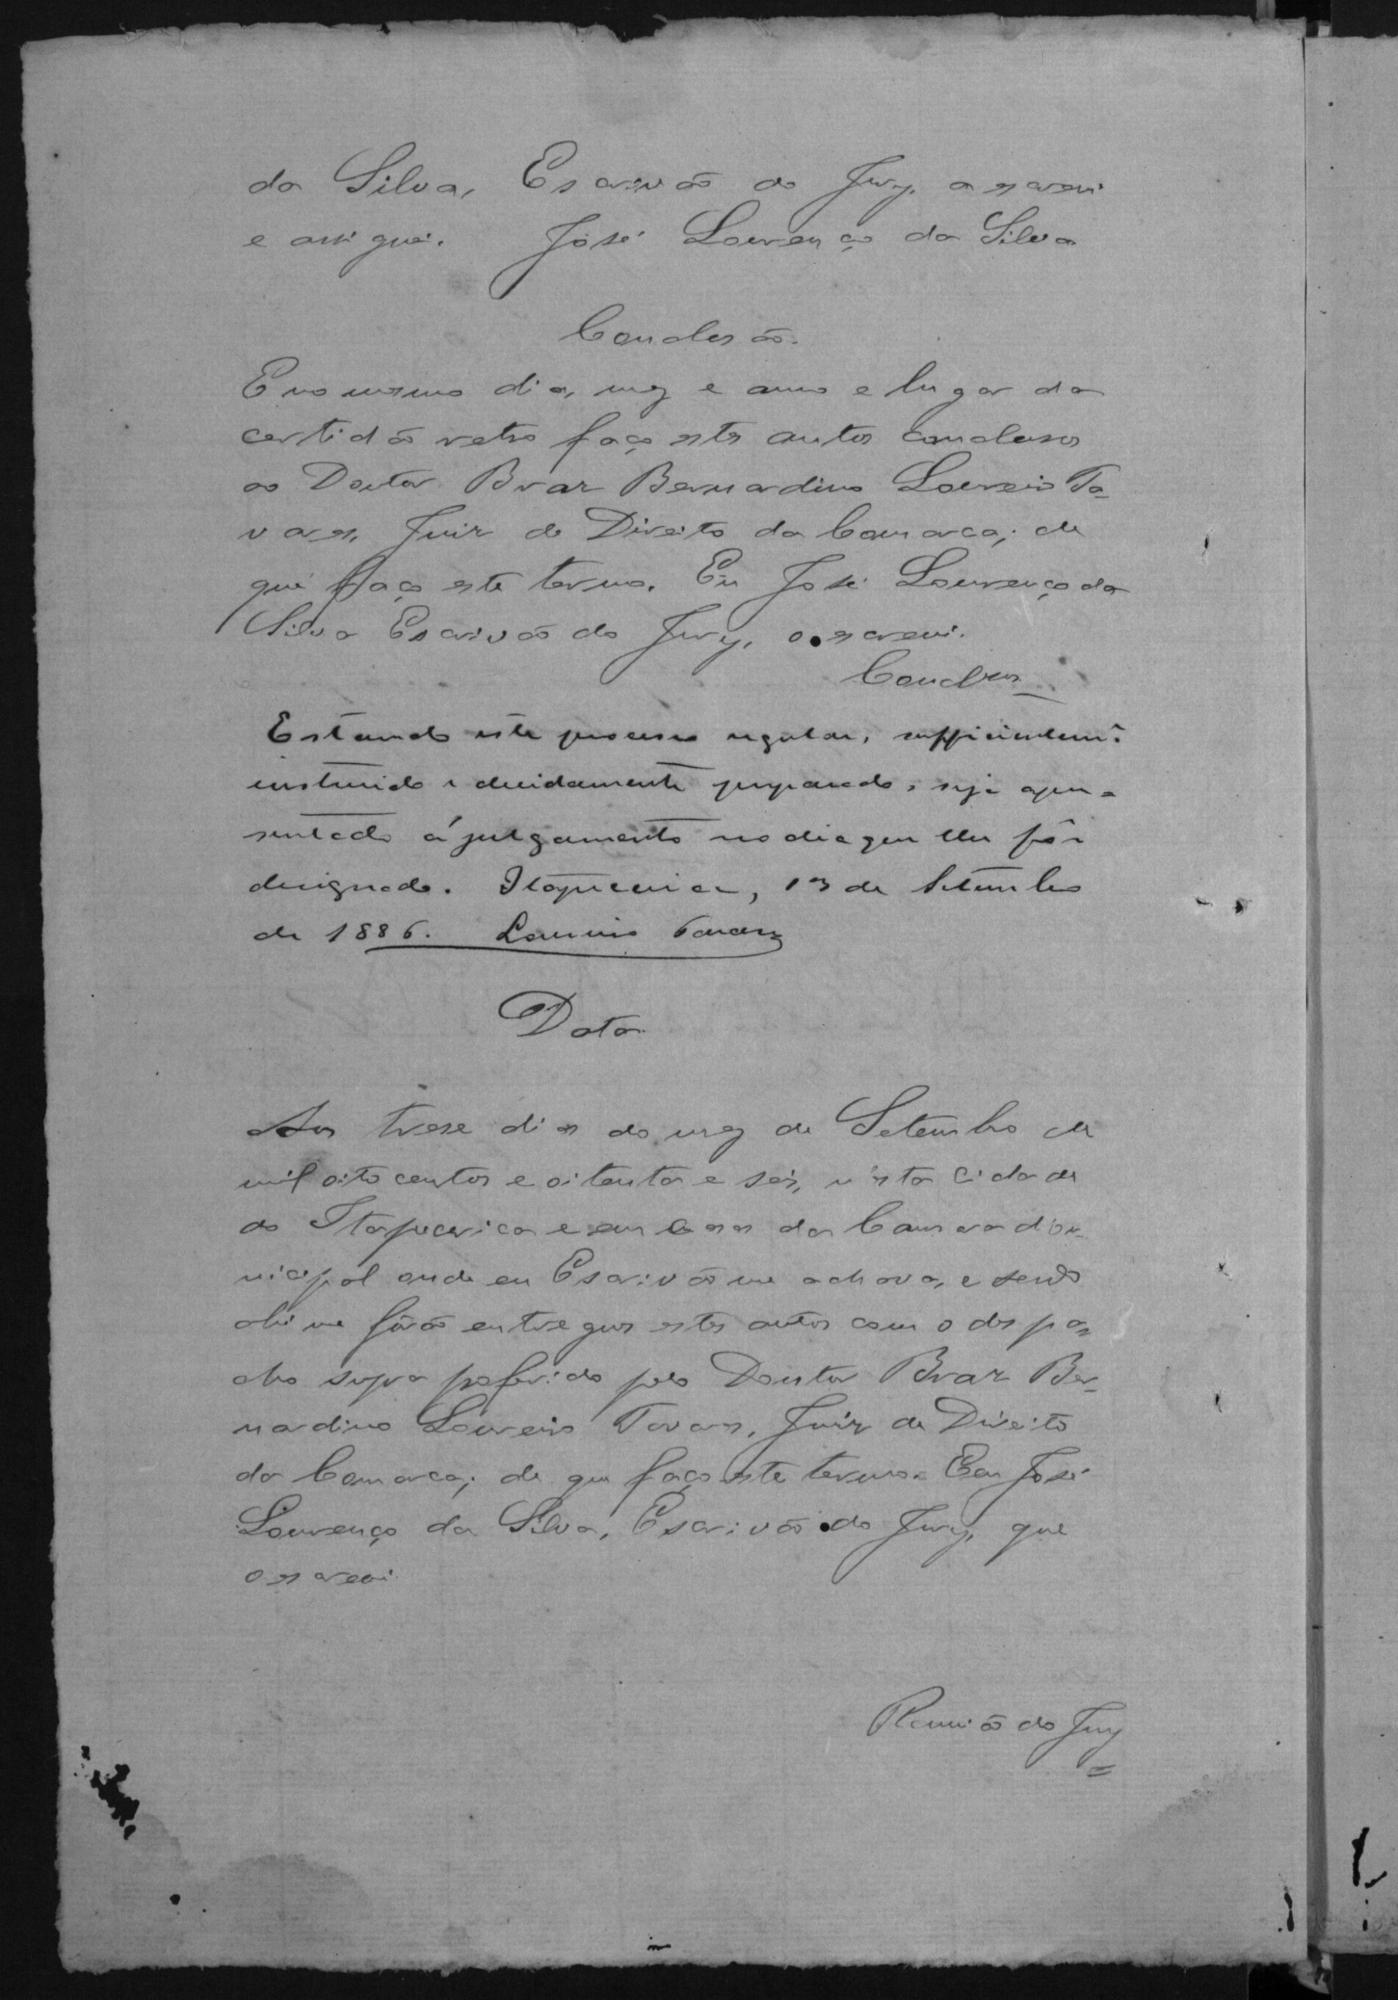 da Silva, Escrivão do Jury, o escrevi
e assignei. José Lourenço da Silva
Conclusão.
E no mesmo dia, mez e anno e lugar da
certidão retro faço estes autos conclusos
ao Doutor Braz Bernardino Loureiro Ta-
vares, Juiz de Direito da Comarca; de
que faço este termo. Eu José Lourenço da
Silva Escrivão do Jury, o escrevi.
Conclusos
Estando este processo regular, sufficientemte
instruido e devidamente preparado, seja apre-
sentado á julgamento no dia que lhe fôr
designado. Itapecerica, 13 de Setembro
de 1886. Loureiro Tavares
Data
Aos trese dias do mez de Setembro de
mil oito centos e oitenta e seis, n'esta Cidade
de Itapecerica e em casa da Camara Mu-
nicipal onde eu Escrivão me achava, e sendo
ahi me forão entregues estes autos com o despa-
cho supra proferido pelo Doutor Braz Ber-
nardino Loureiro Tavares, Juiz de Direito
da Comarca; de que faço este termo. Eu José
Lourenço da Silva, Escrivão do Jury, que
o escrevi
Reunião do Jury